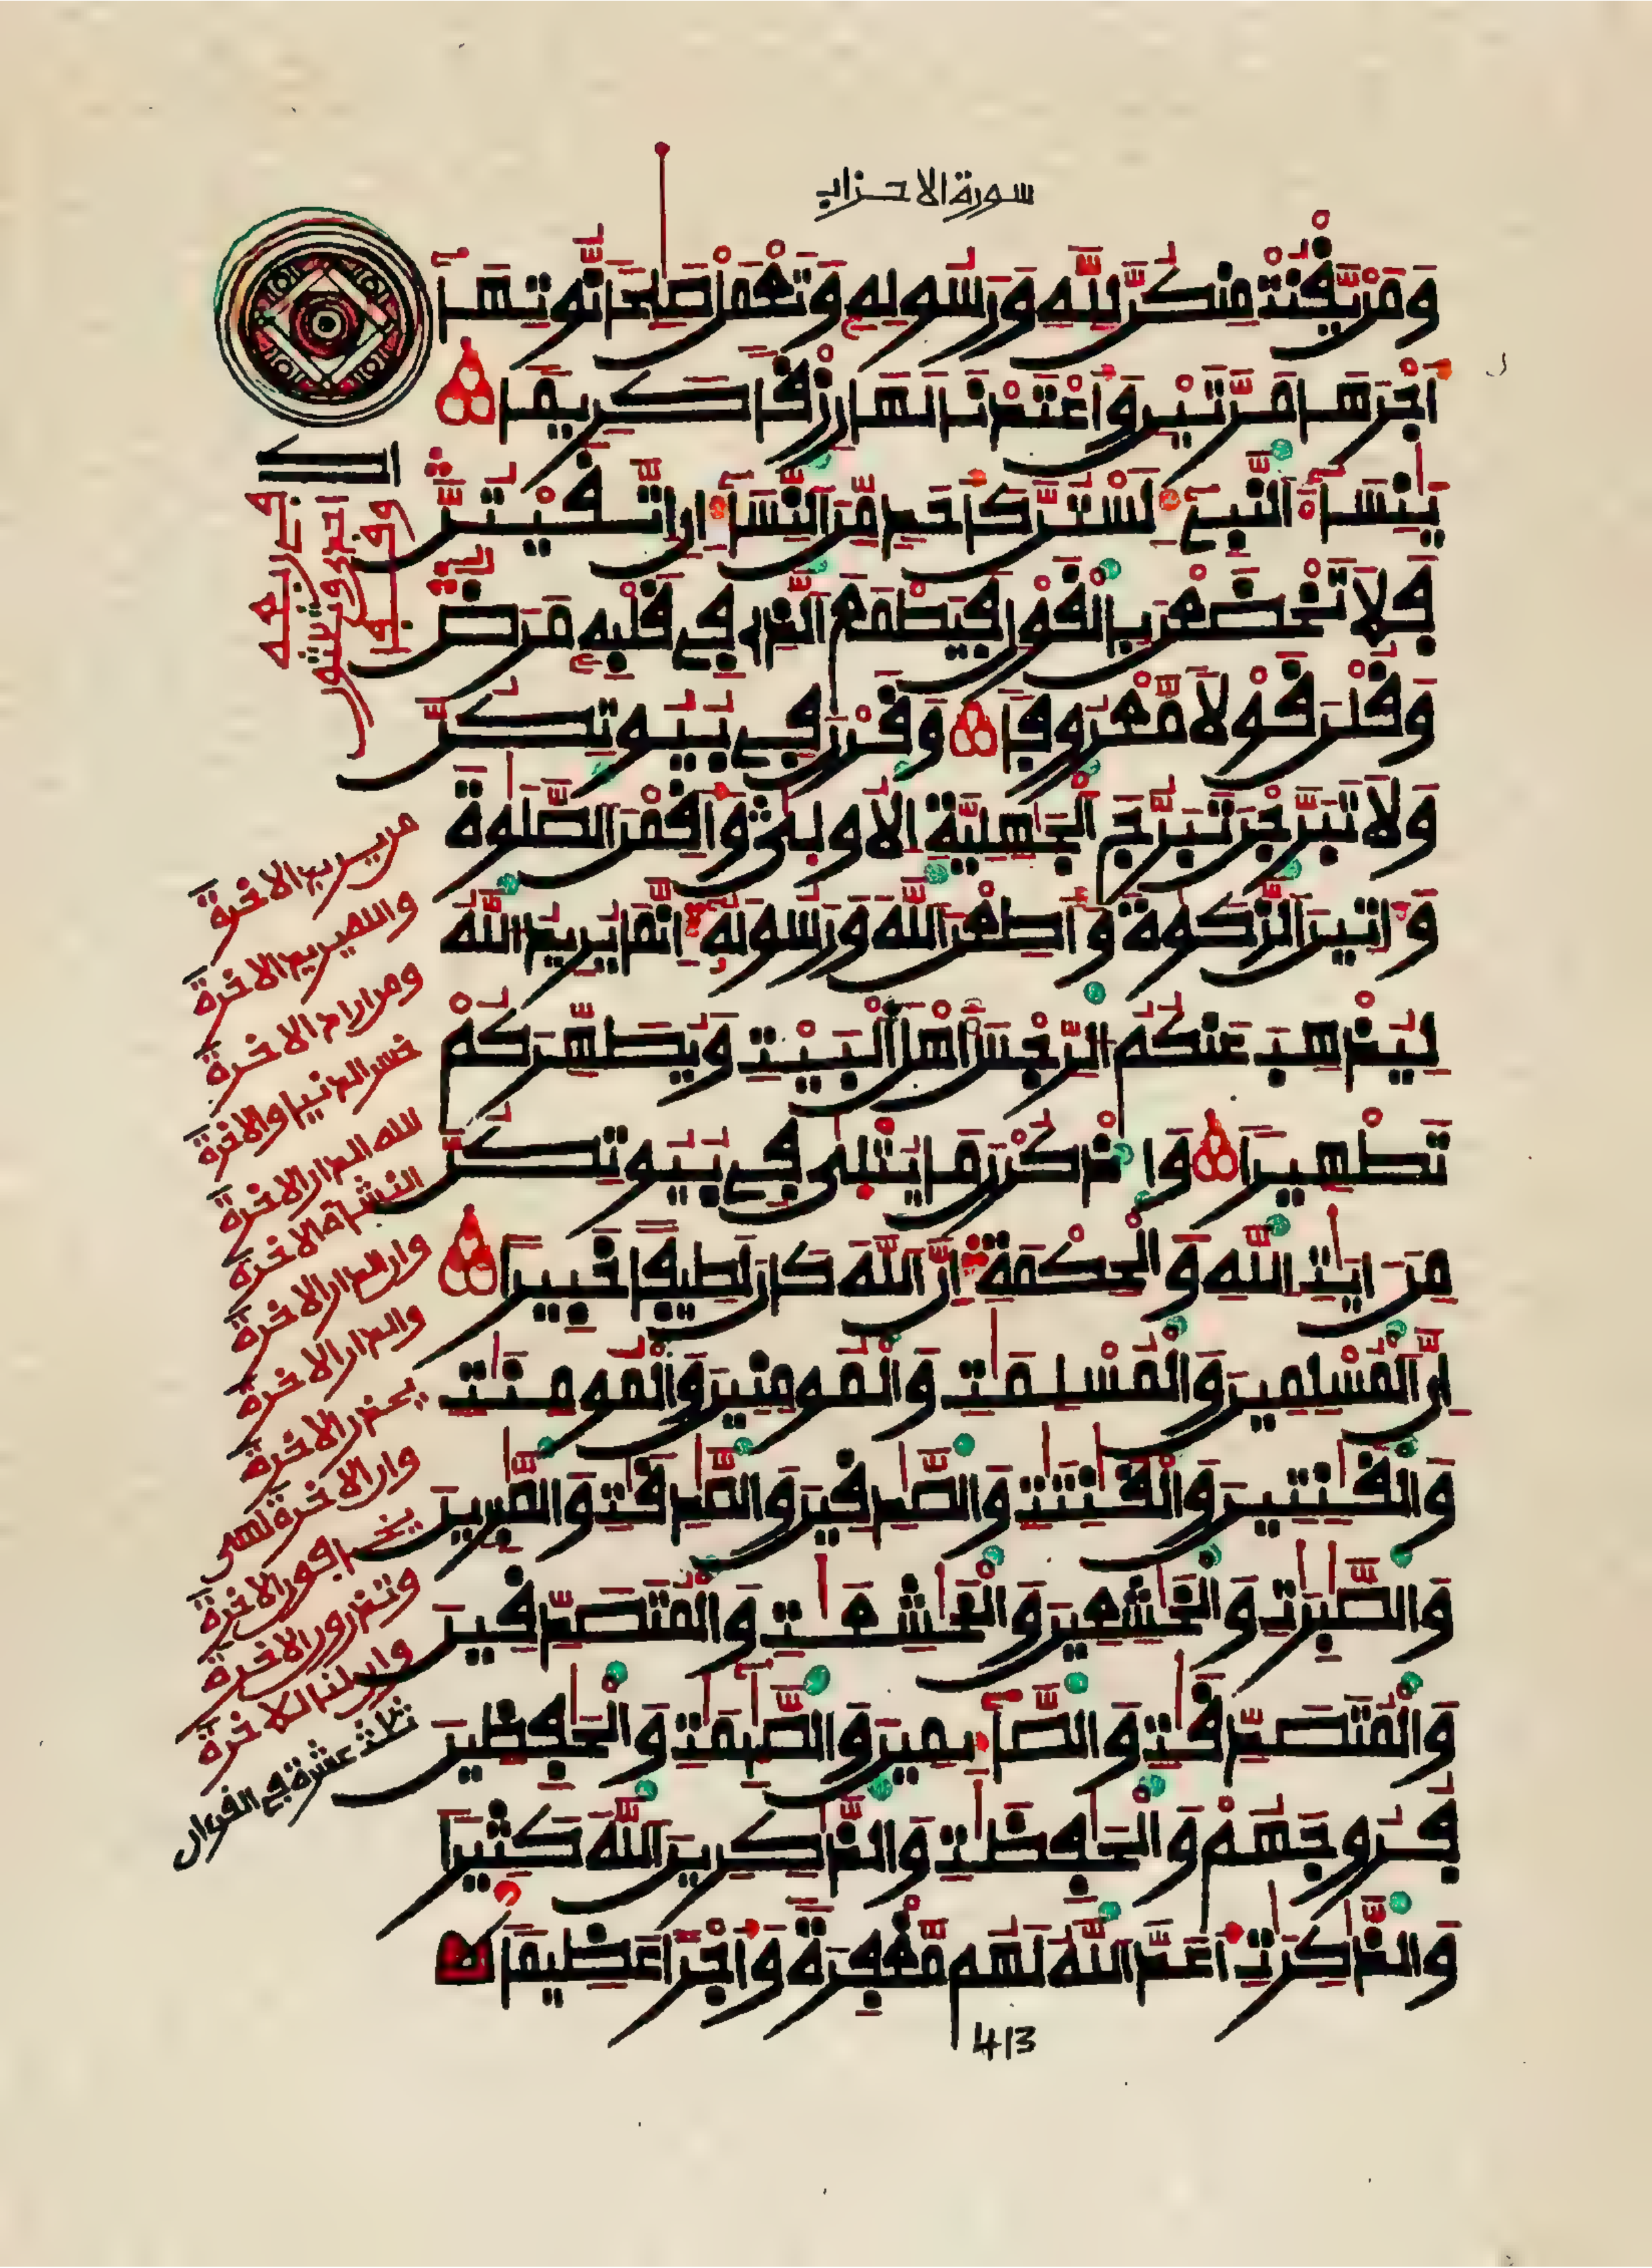 سورة الاحزاب
وَمَنْ يَّقْنُتْ مِنكُنَّ لِلهِ وَرَسُولِهِ وَتَعْمَلْ صَٰلِحاً نُّوتِهَآ
أَجْرَهَا مَرَّتَيْنِ وَأَعْتَدْنَا لَهَا رِزْقاً كَرِيماً
يَٰنِسَآءَ اَلنَّبِےٓءِ لَسْتُنَّ كَأَحَدٖ مِّنَ اَلنِّسَآءِ اِنِ اِتَّقَيْتُنَّ
فَلَا تَخْضَعْنَ بِالْقَوْلِ فَيَطْمَعَ اَلذِے فِے قَلْبِهِ مَرَضٞ
وَقُلْنَ قَوْلاً مَّعْرُوفاً وَقَرْنَ فِے بُيُوتِكُنَّ
وَلَا تَبَرَّجْنَ تَبَرُّجَ اَلْجَٰهِلِيَّةِ اِلُاولٜىٰ وَأَقِمْنَ اَلصَّلَوٰةَ
وَءَاتِينَ اَلزَّكَوٰةَ وَأَطِعْنَ اَللَّهَ وَرَسُولَهُ إِنَّمَا يُرِيدُ اُللَّهُ
لِيُذْهِبَ عَنكُمُ اُلرِّجْسَ أَهْلَ اَلْبَيْتِ وَيُطَهِّرَكُمْ
تَطْهِيراً وَاذْكُرْنَ مَا يُتْلٜىٰ فِے بُيُوتِكُنَّ
مِنَ اٰيَٰتِ اِللَّهِ وَالْحِكْمَةِ إِنَّ اَللَّهَ كَانَ لَطِيفاً خَبِيراً
إِنَّ اَلْمُسْلِمِينَ وَالْمُسْلِمَٰتِ وَالْمُومِنِينَ وَالْمُومِنَٰتِ
وَالْقَٰنِتِينَ وَالْقَٰنِتَٰتِ وَالصَّٰدِقِينَ وَالصَّٰدِقَٰتِ وَالصَّٰبِرِينَ
وَالصَّٰبِرَٰتِ وَالْخَٰشِعِينَ وَالْخَٰشِعَٰتِ وَالْمُتَصَدِّقِينَ
وَالْمُتَصَدِّقَٰتِ وَالصَّٰٓئِمِينَ وَالصَّٰٓئِمَٰتِ وَالْحَٰفِظِينَ
فُرُوجَهُمْ وَالْحَٰفِظَٰتِ وَالذَّٰكِرِينَ اَللَّهَ كَثِيراً
وَالذَّٰكِرَٰتِ أَعَدَّ اَللَّهُ لَهُم مَّغْفِرَةً وَأَجْراً عَظِيماً
من يريد الاخرة
والله يريد الاخرة
ومن اراد الاخرة
خسر الدنيا والاخرة
الدار الاخرة
النشاة الاخرة
وان الدار الاخرة
والدار الاخرة
يحذر الاخرة
وان الاخرة لهي
يخافون الاخرة
وتذرون الاخرة
وان لنا للاخرة
ثلث عشرة في القرءان
413